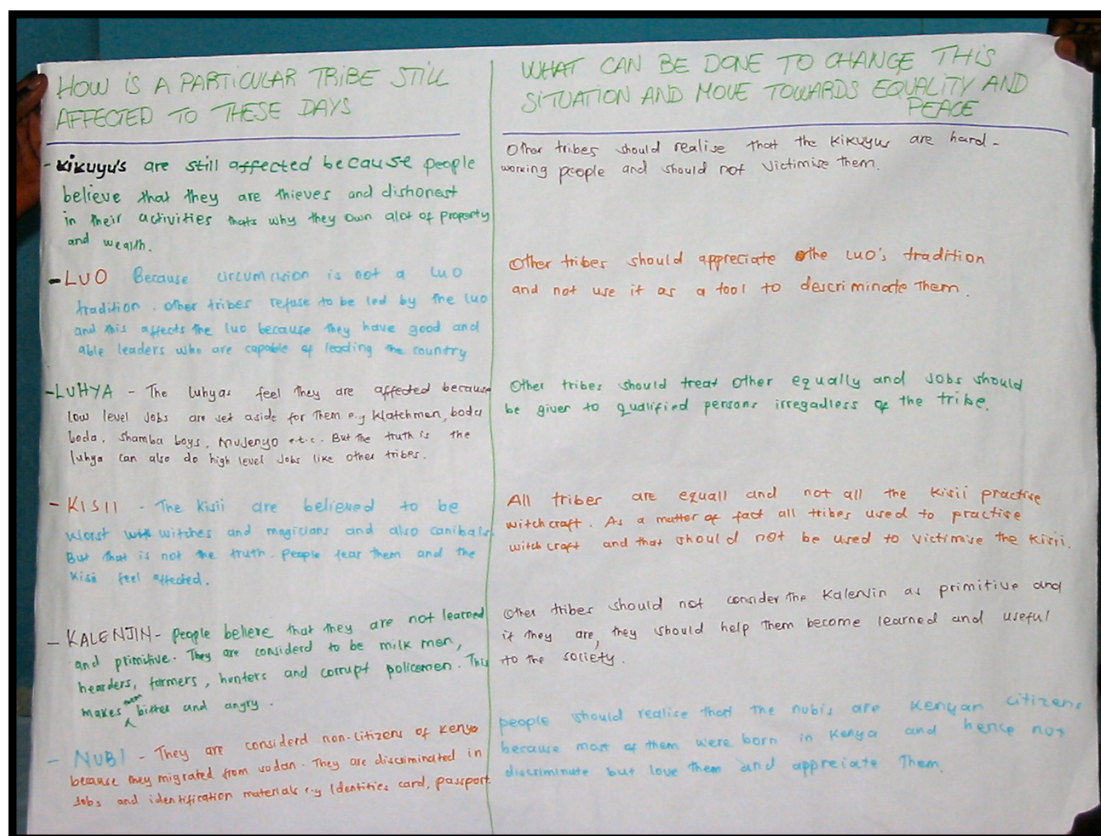 HOW IS A PARTICULAR TRIBE STILL
AFFECTED TO THESE DAYS
- Kikuyu's are still affected because people
believe that they are thieves and dishonest
in their activities thats why they own alot of property
and wealth.
- LUO Because circumcision is not a luo
tradition. Other tribes refuse to be led by the luo
and this affects the luo because they have good and
able leaders who are capable of leading the country
- LUHYA - The luhyas feel they are affected because
low level jobs are set aside for them e.g Watchmen, boda
boda, shamba boys, Mujenyo e.t.c. But the truth is the
luhya can also do high level jobs like other tribes.
- KISII - The kisii are believed to be
worst witches and magicians and also canibals
But that is not the truth. People fear them and the
Kisii feel affected.
- KALENJIN - people believe that they are not learned
and primitive. They are considerd to be milk men,
hearders, farmers, hunters and corrupt policemen. This
makes them bitter and angry.
- NUBI - They are considerd non-citizens of Kenya
because they migrated from sudan. They are discriminated in
Jobs and identification materials e.g Identities card, passport
WHAT CAN BE DONE TO CHANGE THIS
SITUATION AND MOVE TOWARDS EQUALITY AND
PEACE
Other tribes should realise that the Kikuyus are hard-
working people and should not victimise them.
Other tribes should appreciate the luo's tradition
and not use it as a tool to descriminate them.
Other tribes should treat other equally and jobs should
be given to qualified persons irregadless of the tribe.
All tribes are equall and not all the Kisii practise
witchcraft. As a matter of fact all tribes used to practise
witch craft and that should not be used to victimise the Kisii.
Other tribes should not consider the Kalenjin as primitive and
if they are, they should help them become learned and useful
to the society.
people should realise that the nubis are Kenyan citizens
because most of them were born in Kenya and hence not
discriminate but love them and appreciate Them.